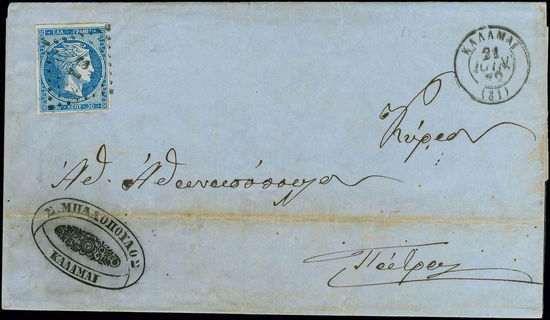 ΕΛΛ. ΓΡΑΜΜ.
20 ΛΕΠΤ. 20
ΚΑΛΑΜΑΙ
21
ΙΟΥΝ.
72
(81)
Κύριον
Αθ. Αθανασόπουλον
Πάτρας
Σ. ΜΠΑΛΟΠΟΥΛΟΣ
ΚΑΛΑΜΑΙ